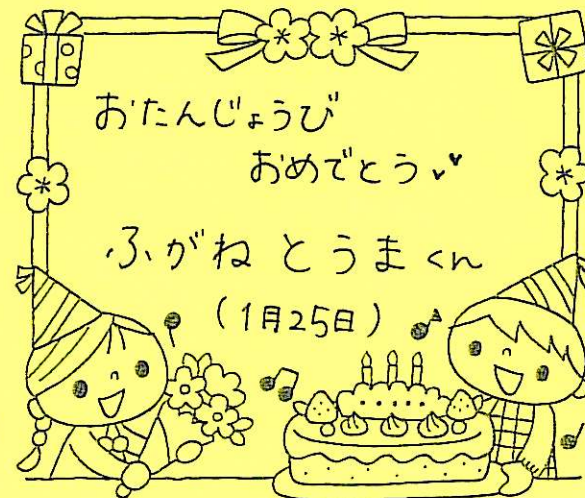 おたんじょうび
おめでとう
ふがね とうまくん
(1月25日)